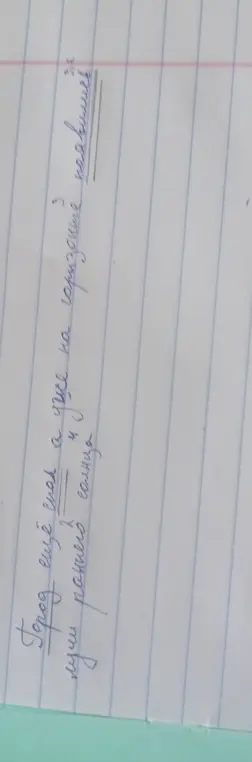 Город ещё спал а уже на горизонте появились
лучи раннего солнца